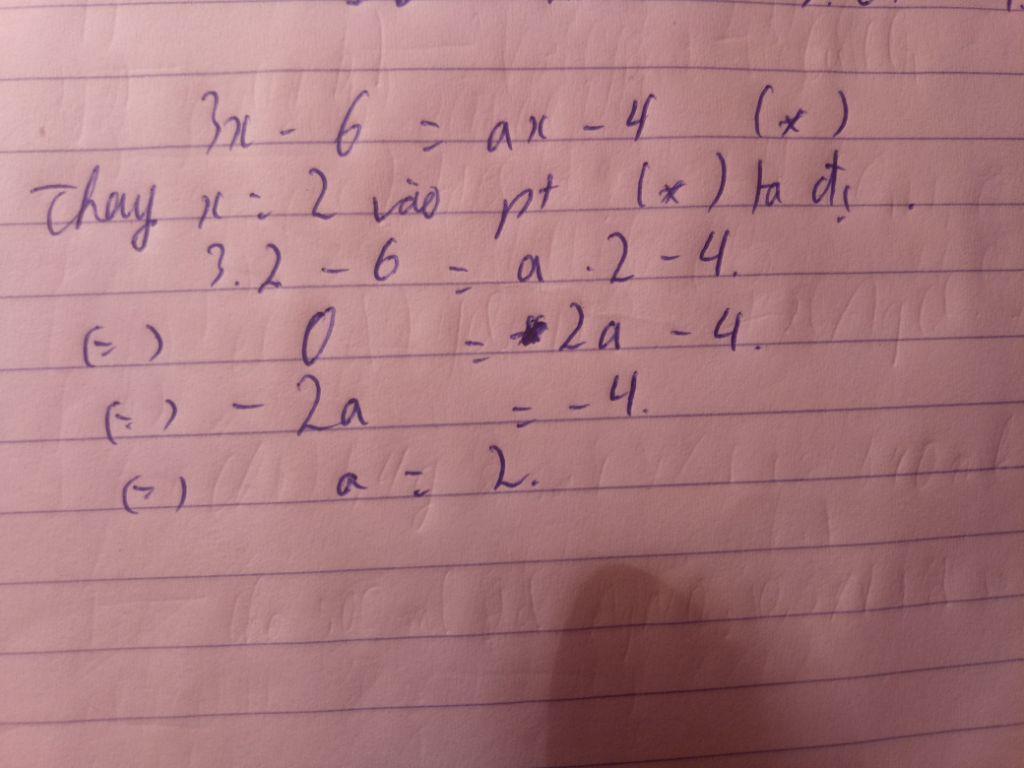 3x - 6 = ax - 4 (*)
Thay x = 2 vào pt (*) ta đ.
3.2 - 6 = a . 2 - 4.
(=) 0 = 2a - 4.
(=) - 2a = - 4.
(=) a = 2.